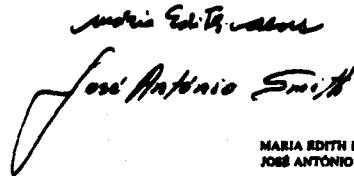 Maria Edith
José António Smith
MARIA EDITH
JOSÉ ANTÓNIO